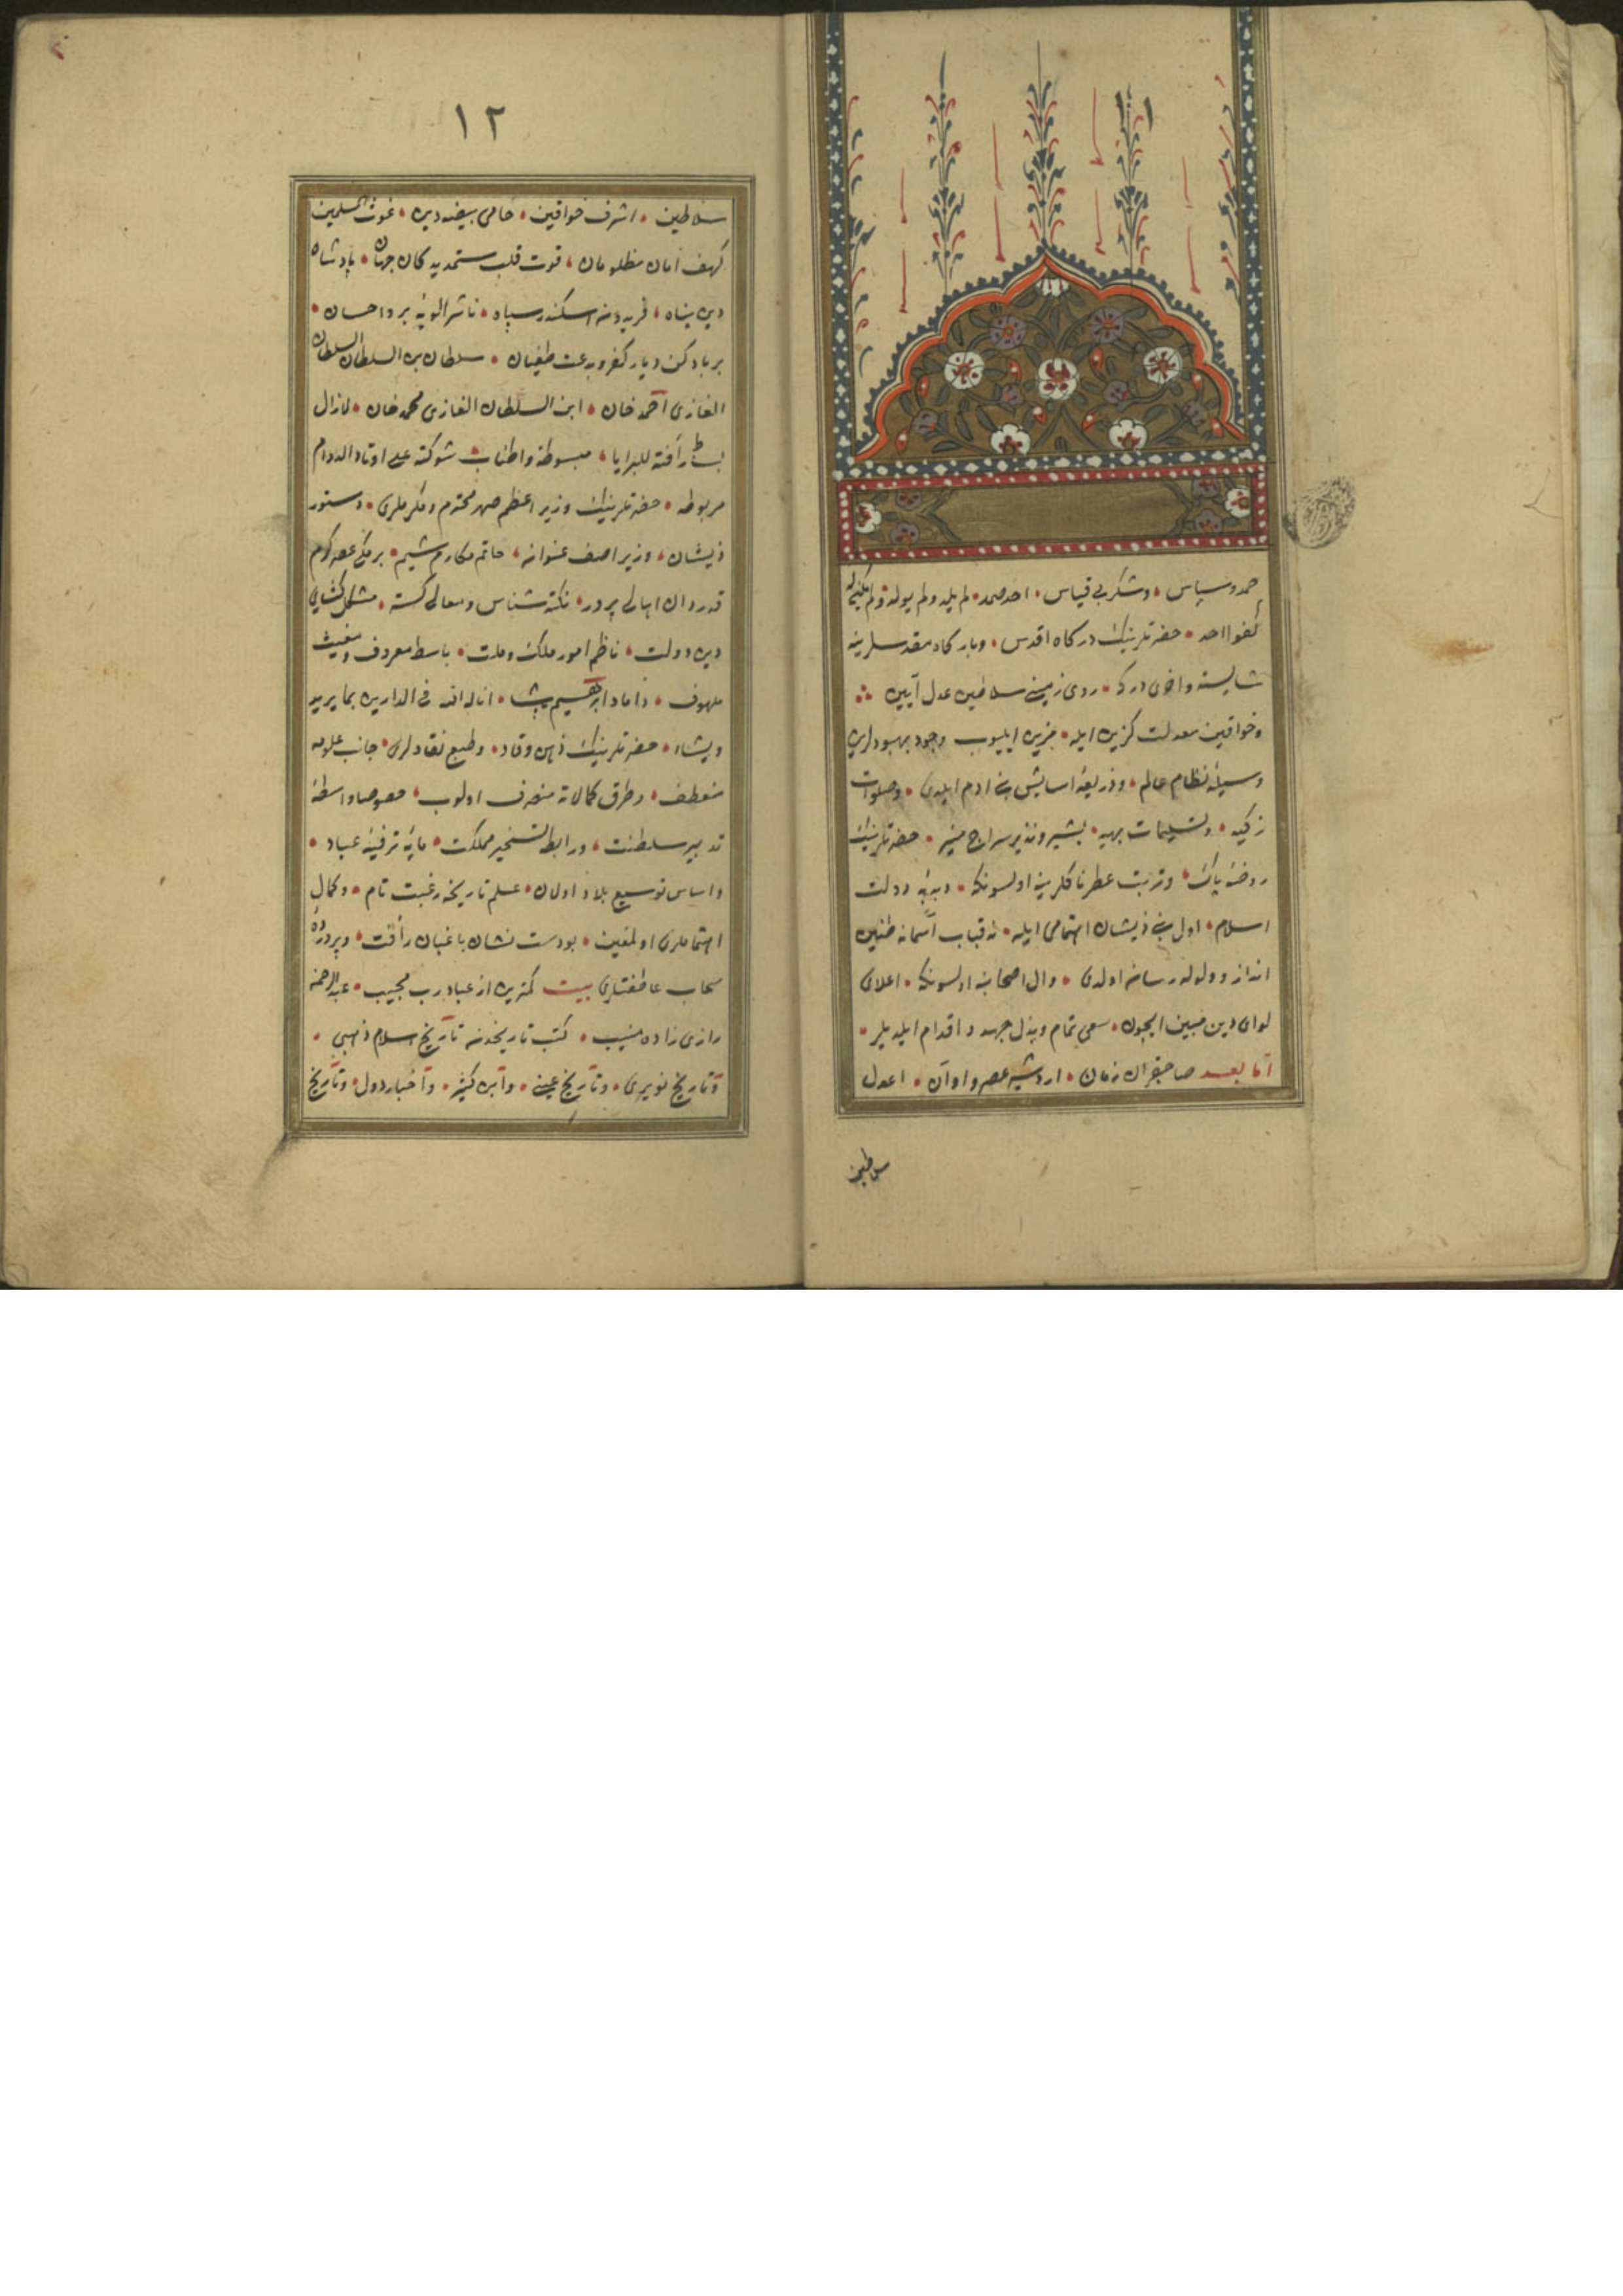 حمد و سپاس و شکر بی قیاس احد صمد لم یلد ولم یولد ولم یکن له
کفوا احد حضرتلرینك درکاه اقدس و بارکاه مقدسلرینه
شایسته و احری درکه روی زمینی سلاطین عدل آیین
و خواقین معدلت کزین ایله مزین ایلیوب وجود بهبودلرین
وسیلهٔ نظام عالم و ذریعهٔ اسایش بنی ادم ایلدی و صلوات
زکیه و تسلیمات بهیه بشیر و نذیر سراج منیر حضرتلرینك
روضهٔ پاك و تربت عطرناکلرینه اولسونکه دبدبهٔ دولت
اسلام اول نبی ذیشان اهتمامی ایله نه قباب آسمانه طنین
انداز و ولوله رسان اولدی و ال و اصحابنه اولسونکه اعلای
لوای دین مبین ایچون سعی تمام و بذل جهد و اقدام ایلدیلر
اما بعد صاحبقران زمان اردشیر عصر و اوان اعدل
سلاطین
١٢
سلاطین اشرف خواقین حامی بیضه دین غوث المسلمین
کهف امان مظلومان قوت قلب ستمدیدکان جهان پادشاه
دین پناه فریدون اسکندر سپاه ناشر الویهٔ بر و احسان
بربادکن دیار کفر و بدعت طغیان سلطان بن السلطان السلطان
الغازی احمد خان ابن السلطان الغازی محمد خان لازال
بساط رأفته للبرایا مبسوطة و اطناب شوکته علی اوتاد الدوام
مربوطه حضرتلرینك وزیر اعظم صهر محترم و مکرملری دستور
ذیشان وزیر اصف عنوان حاتم مکارم شیم برمکی عصر کرم
قدردان اهالی پرور نکته شناس و معالی کستر مشکل کشای
دین و دولت ناظم امور ملك و ملت باسط معروف و مغیث
ملهوف داماد ابراهیم پاشا اناله الله فی الدارین بما یرید
و یشاء حضرتلرینك ذهن وقاد و طبع نقادلری جانب علومه
منعطف و طرق کمالاته منصرف اولوب خصوصا واسطهٔ
تدبیر سلطنت و رابطهٔ تسخیر مملکت مایهٔ ترفیهٔ عباد
و اساس توسیع بلاد اولان علم تاریخه رغبت تام و کمال
اهتماملری اولمغین بو دست نشان باغبان رأفت و پروردهٔ
سحاب عاطفتلری بیت کمترین از عباد رب مجیب عبد الرحمن
رازی زاده منیب کتب تاریخدن تاریخ اسلام ذهبی
و تاریخ نویری و تاریخ عینی و ابن کثیر و اخبار دول و تاریخ